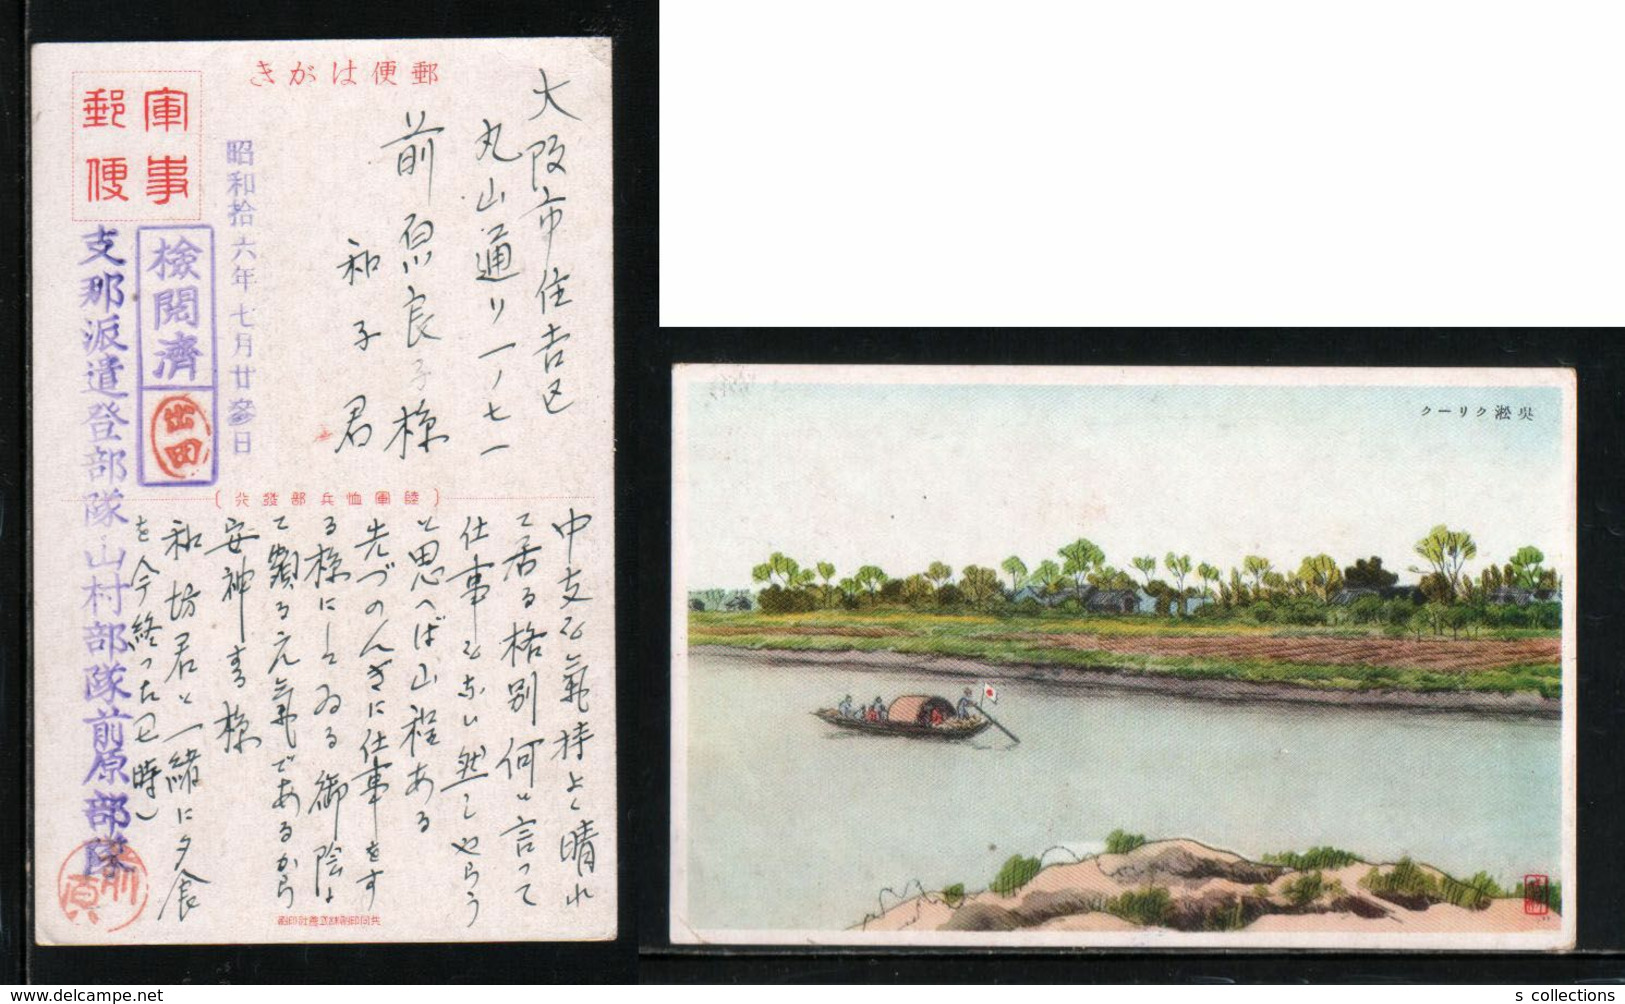 郵便はがき
軍事
郵便
昭和拾六年七月廿参日
検閲濟
出田
支那派遣登部隊山村部隊前原部隊
前原
大阪市住吉区
丸山通リ一ノ七一
前原良子様
和子君
(陸軍恤兵部發行)
中支も氣持よく晴れ
て居る格別何と言って
仕事もない然しやらう
と思へば山程ある
先づのんきに仕事をす
る様にしてゐる御陰よ
て頗る元氣であるから
安神する様
和坊君と一緒に夕食
を今終った
呉淞クリーク
s collections